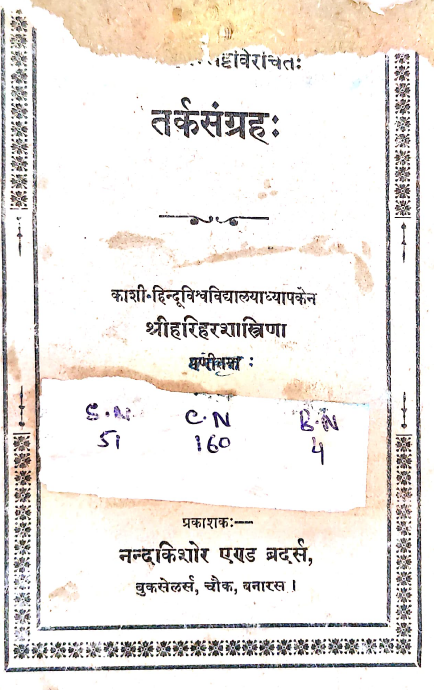 तर्कसंग्रहः
काशी-हिन्दूविश्वविद्यालयाध्यापकेन
श्रीहरिहरशास्त्रिणा
S.N. C.N B.N
51 160 4
प्रकाशकः—
नन्दकिशोर एण्ड ब्रदर्स,
बुकसेलर्स, चौक, बनारस ।